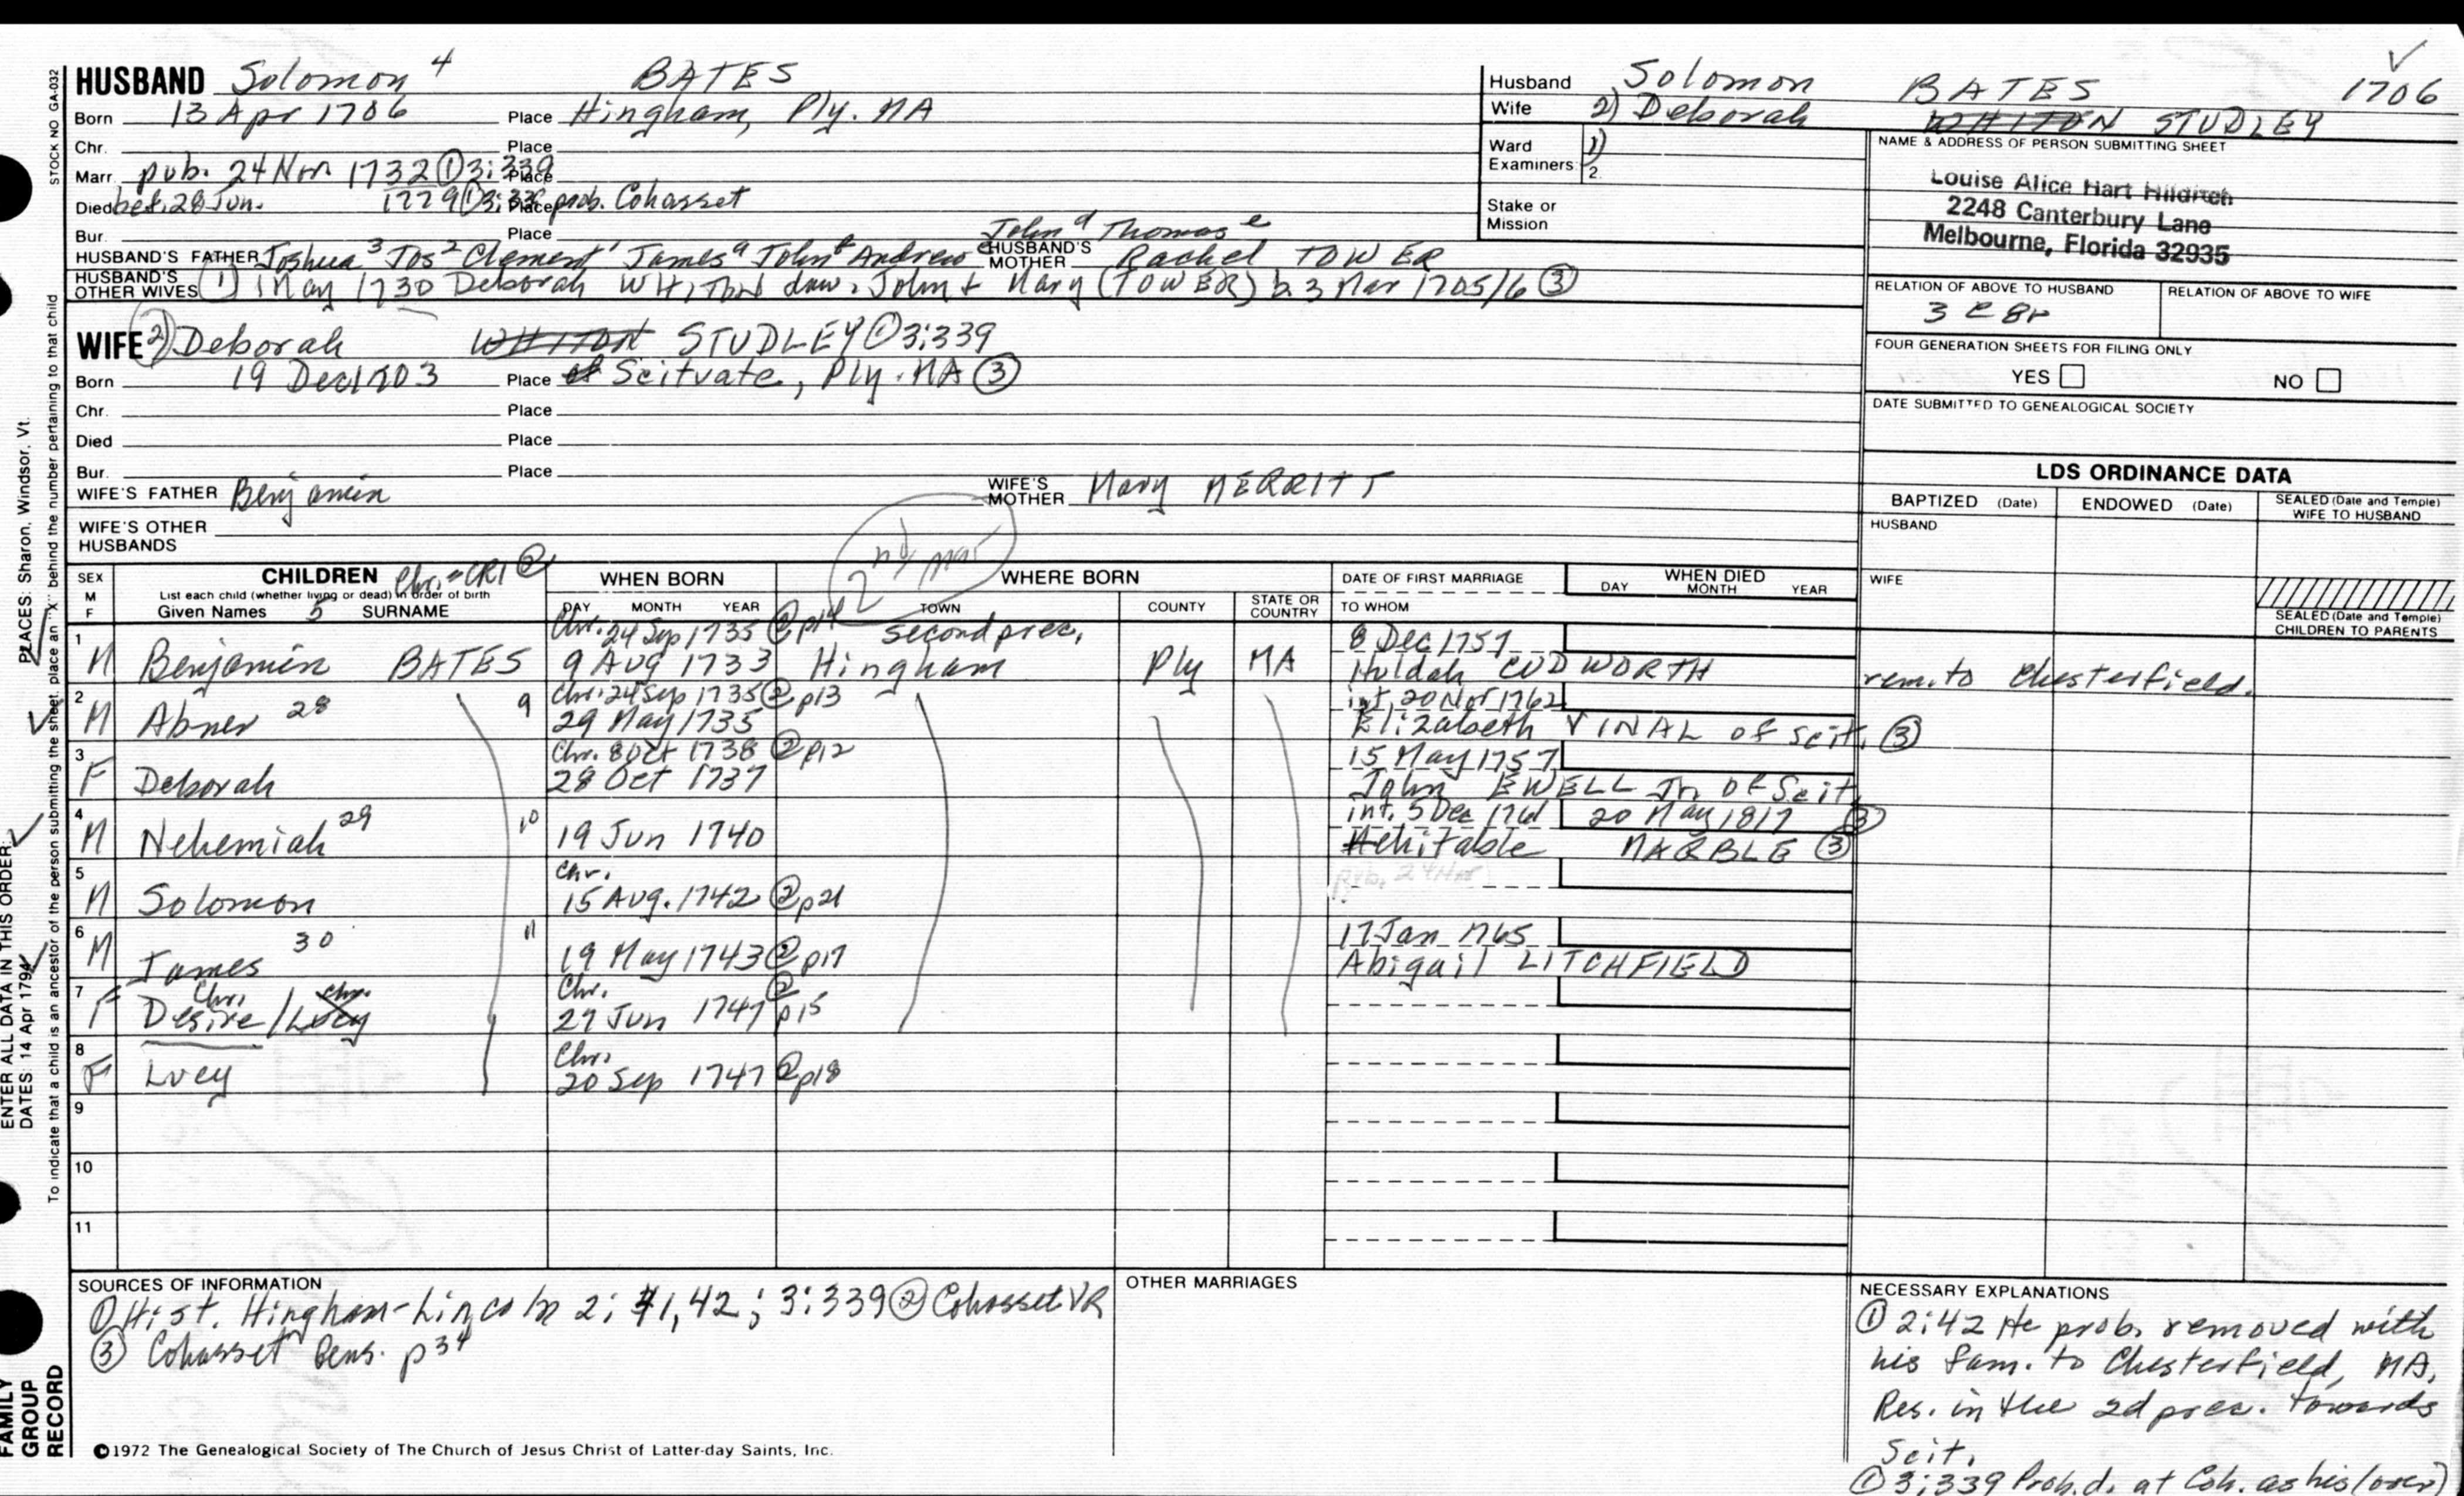 HUSBAND Solomon 4 BATES
Born 13 Apr 1706 Place Hingham, Ply. MA
Chr. Place
Marr. pub. 24 Nov 1732 ① 3:339 Place
Died bef. 28 Jun. 1779 ① 3:339 Place prob. Cohasset
Bur. Place
John d Thomas e
HUSBAND'S FATHER Joshua 3 Jos 2 Clement 1 James a John b Andrew c HUSBAND'S MOTHER Rachel TOWER
HUSBAND'S OTHER WIVES (1) May 1730 Deborah WHITON dau. John + Mary (TOWER) b. 3 Mar 1705/6 ③
WIFE 2) Deborah WHITON STUDLEY ① 3:339
Born 19 Dec 1703 Place of Scituate, Ply. MA ③
Chr. Place
Died Place
Bur. Place
WIFE'S FATHER Benjamin WIFE'S MOTHER Mary MERRITT
WIFE'S OTHER HUSBANDS
Husband Solomon BATES 1706
Wife 2) Deborah WHITON STUDLEY
Ward Examiners 1) 2.
Stake or Mission
NAME & ADDRESS OF PERSON SUBMITTING SHEET
Louise Alice Hart Hildreth
2248 Canterbury Lane
Melbourne, Florida 32935
RELATION OF ABOVE TO HUSBAND RELATION OF ABOVE TO WIFE
3 c 8r
FOUR GENERATION SHEETS FOR FILING ONLY
YES NO
DATE SUBMITTED TO GENEALOGICAL SOCIETY
LDS ORDINANCE DATA
BAPTIZED (Date) ENDOWED (Date) SEALED (Date and Temple) WIFE TO HUSBAND
HUSBAND
WIFE
SEALED (Date and Temple) CHILDREN TO PARENTS
2nd mar
SEX M F
CHILDREN Chr. = CR1 ②
List each child (whether living or dead) in order of birth
Given Names 5 SURNAME
WHEN BORN
DAY MONTH YEAR
WHERE BORN
TOWN COUNTY STATE OR COUNTRY
DATE OF FIRST MARRIAGE
TO WHOM
WHEN DIED
DAY MONTH YEAR
Chr. 24 Sep 1735 ② p14 second prec. 8 Dec 1757
1 M Benjamin BATES 9 Aug 1733 Hingham Ply MA Huldah CUDWORTH rem. to Chesterfield.
Chr. 24 Sep 1735 ② p13 int. 20 Nov 1762
2 M Abner 28 9 29 May 1735 Elizabeth VINAL of Scit. ③
Chr. 8 Oct 1738 ② p12 15 May 1757
3 F Deborah 28 Oct 1737 John EWELL Jr. of Scit.
int. 5 Dec 1761 20 May 1817 ③
4 M Nehemiah 29 10 19 Jun 1740 Mehitable MARBLE ③
Chr. pub. 24 Nov
5 M Solomon 15 Aug. 1742 ② p21
17 Jan 1765
6 M James 30 11 19 May 1743 ② p17 Abigail LITCHFIELD
Chr. chr. Chr. ②
7 F Desire / Lucy 27 Jun 1747 p15
Chr.
8 F Lucy 20 Sep 1747 ② p18
9
10
11
SOURCES OF INFORMATION
① Hist. Hingham-Lincoln 2: 41, 42; 3:339 ② Cohasset VR
③ Cohasset Gens. p34
OTHER MARRIAGES
NECESSARY EXPLANATIONS
① 2:42 He prob. removed with
his fam. to Chesterfield, MA.
Res. in the 2d prec. towards
Scit.
① 3:339 Prob. d. at Coh. as his (over)
©1972 The Genealogical Society of The Church of Jesus Christ of Latter-day Saints, Inc.
STOCK NO GA-032
To indicate that a child is an ancestor of the person submitting the sheet, place an "X" behind the number pertaining to that child
PLACES: Sharon, Windsor, Vt.
ENTER ALL DATA IN THIS ORDER:
DATES: 14 Apr 1794
FAMILY
GROUP
RECORD